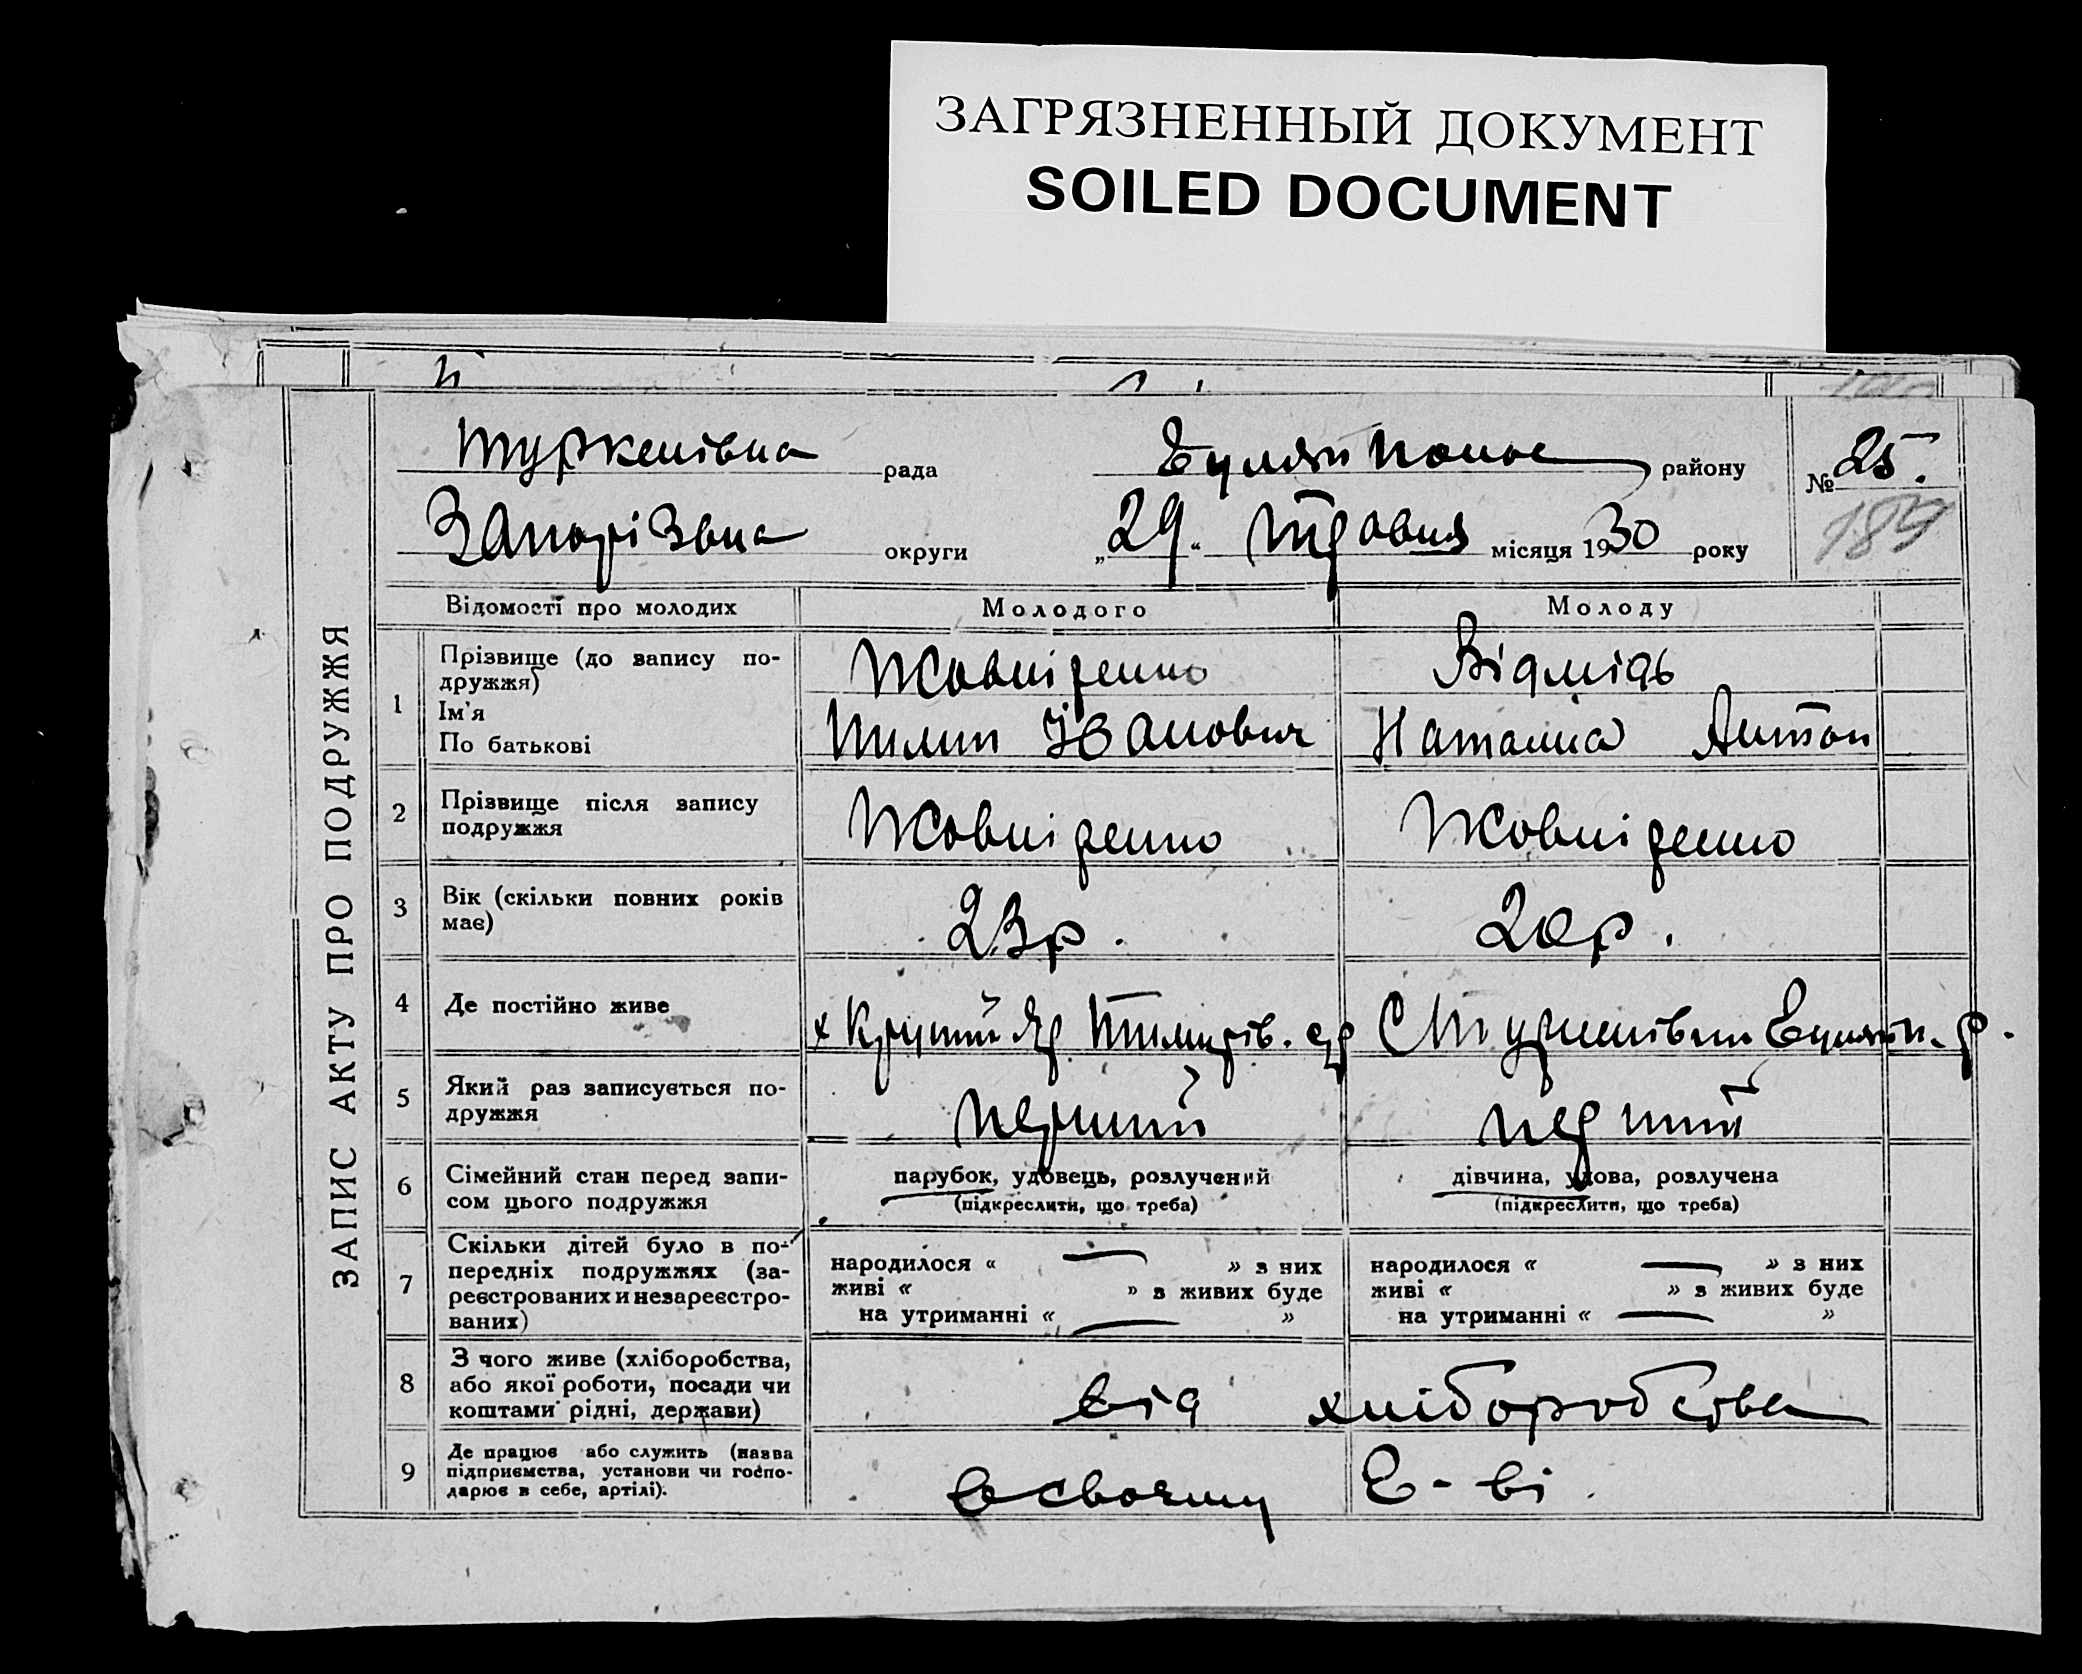 ЗАГРЯЗНЕННЫЙ ДОКУМЕНТ
SOILED DOCUMENT
ЗАПИС АКТУ ПРО ПОДРУЖЖЯ
Туркенівка рада
Гуляй Польс району
№ 25.
Запорізька округи
„29“ Травня місяця 1930 року
184
Відомості про молодих Молодого Молоду
1 Прізвище (до запису по-
дружжя)
Ім'я
По батькові
Жовніренко Відмідь
Пилип Іванович Наталка Антон
2 Прізвище після запису
подружжя
Жовніренко Жовніренко
3 Вік (скільки повних років
має)
23 р. 20 р.
4 Де постійно живе
х Крутий Яр С Туркенівки Гуляйп. р.
5 Який раз записується по-
дружжя
перший перший
6 Сімейний стан перед запи-
сом цього подружжя
парубок, удовець, розлучений дівчина, удова, розлучена
(підкреслити, що треба) (підкреслити, що треба)
7 Скільки дітей було в по-
передніх подружжях (за-
реєстрованих и незареєстро-
ваних)
народилося « — » з них народилося « — » з них
живі « » з живих буде живі « » з живих буде
на утриманні « — » на утриманні « — »
8 З чого живе (хліборобства,
або якої роботи, посади чи
коштами рідні, держави)
від хліборобства
9 Де працює або служить (назва
підприємства, установи чи госпо-
дарює в себе, артілі).
в своєму Г-ві.